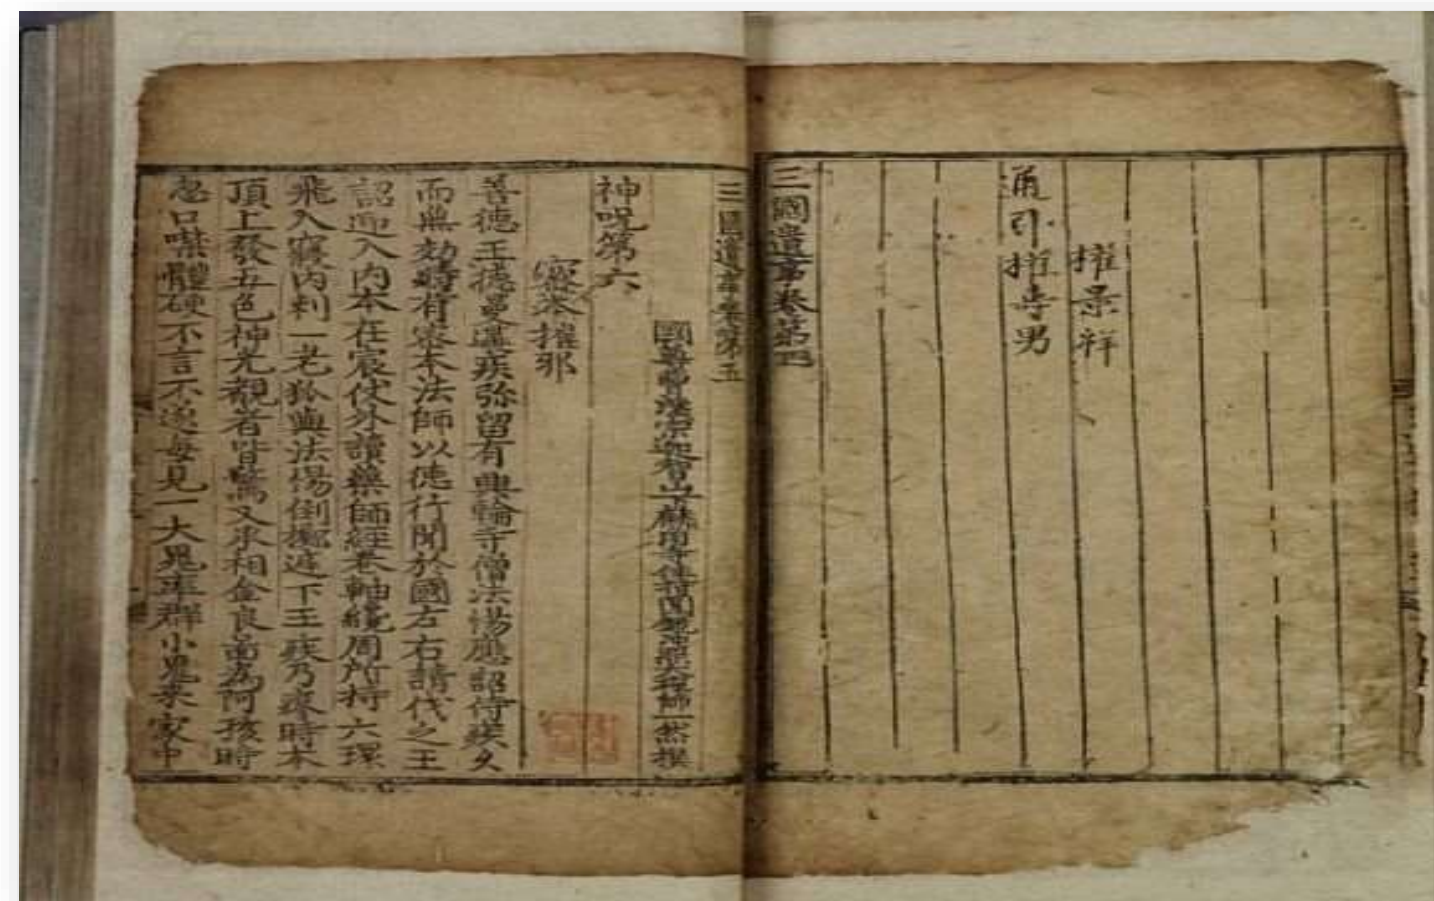 擢景祥
通引擢寺男
三國遺事卷第四
三國遺事卷第五
國尊曹溪宗迦智山下麟角寺住持圓鏡冲照大禪師一然撰
神呪第六
密本摧邪
善德王德曼遘疾弥留有興輪寺僧法惕應詔侍疾久
而無効時有密本法師以德行聞於國左右請代之王
詔迎入內本在宸仗外讀藥師經卷軸纔周所持六環
飛入寢內刺一老狐與法惕倒擲庭下王疾乃瘳時本
頂上發五色神光覩者皆驚又承相金良啚為阿孩時
忽口噤體硬不言不遂每見一大鬼率群小鬼來家中